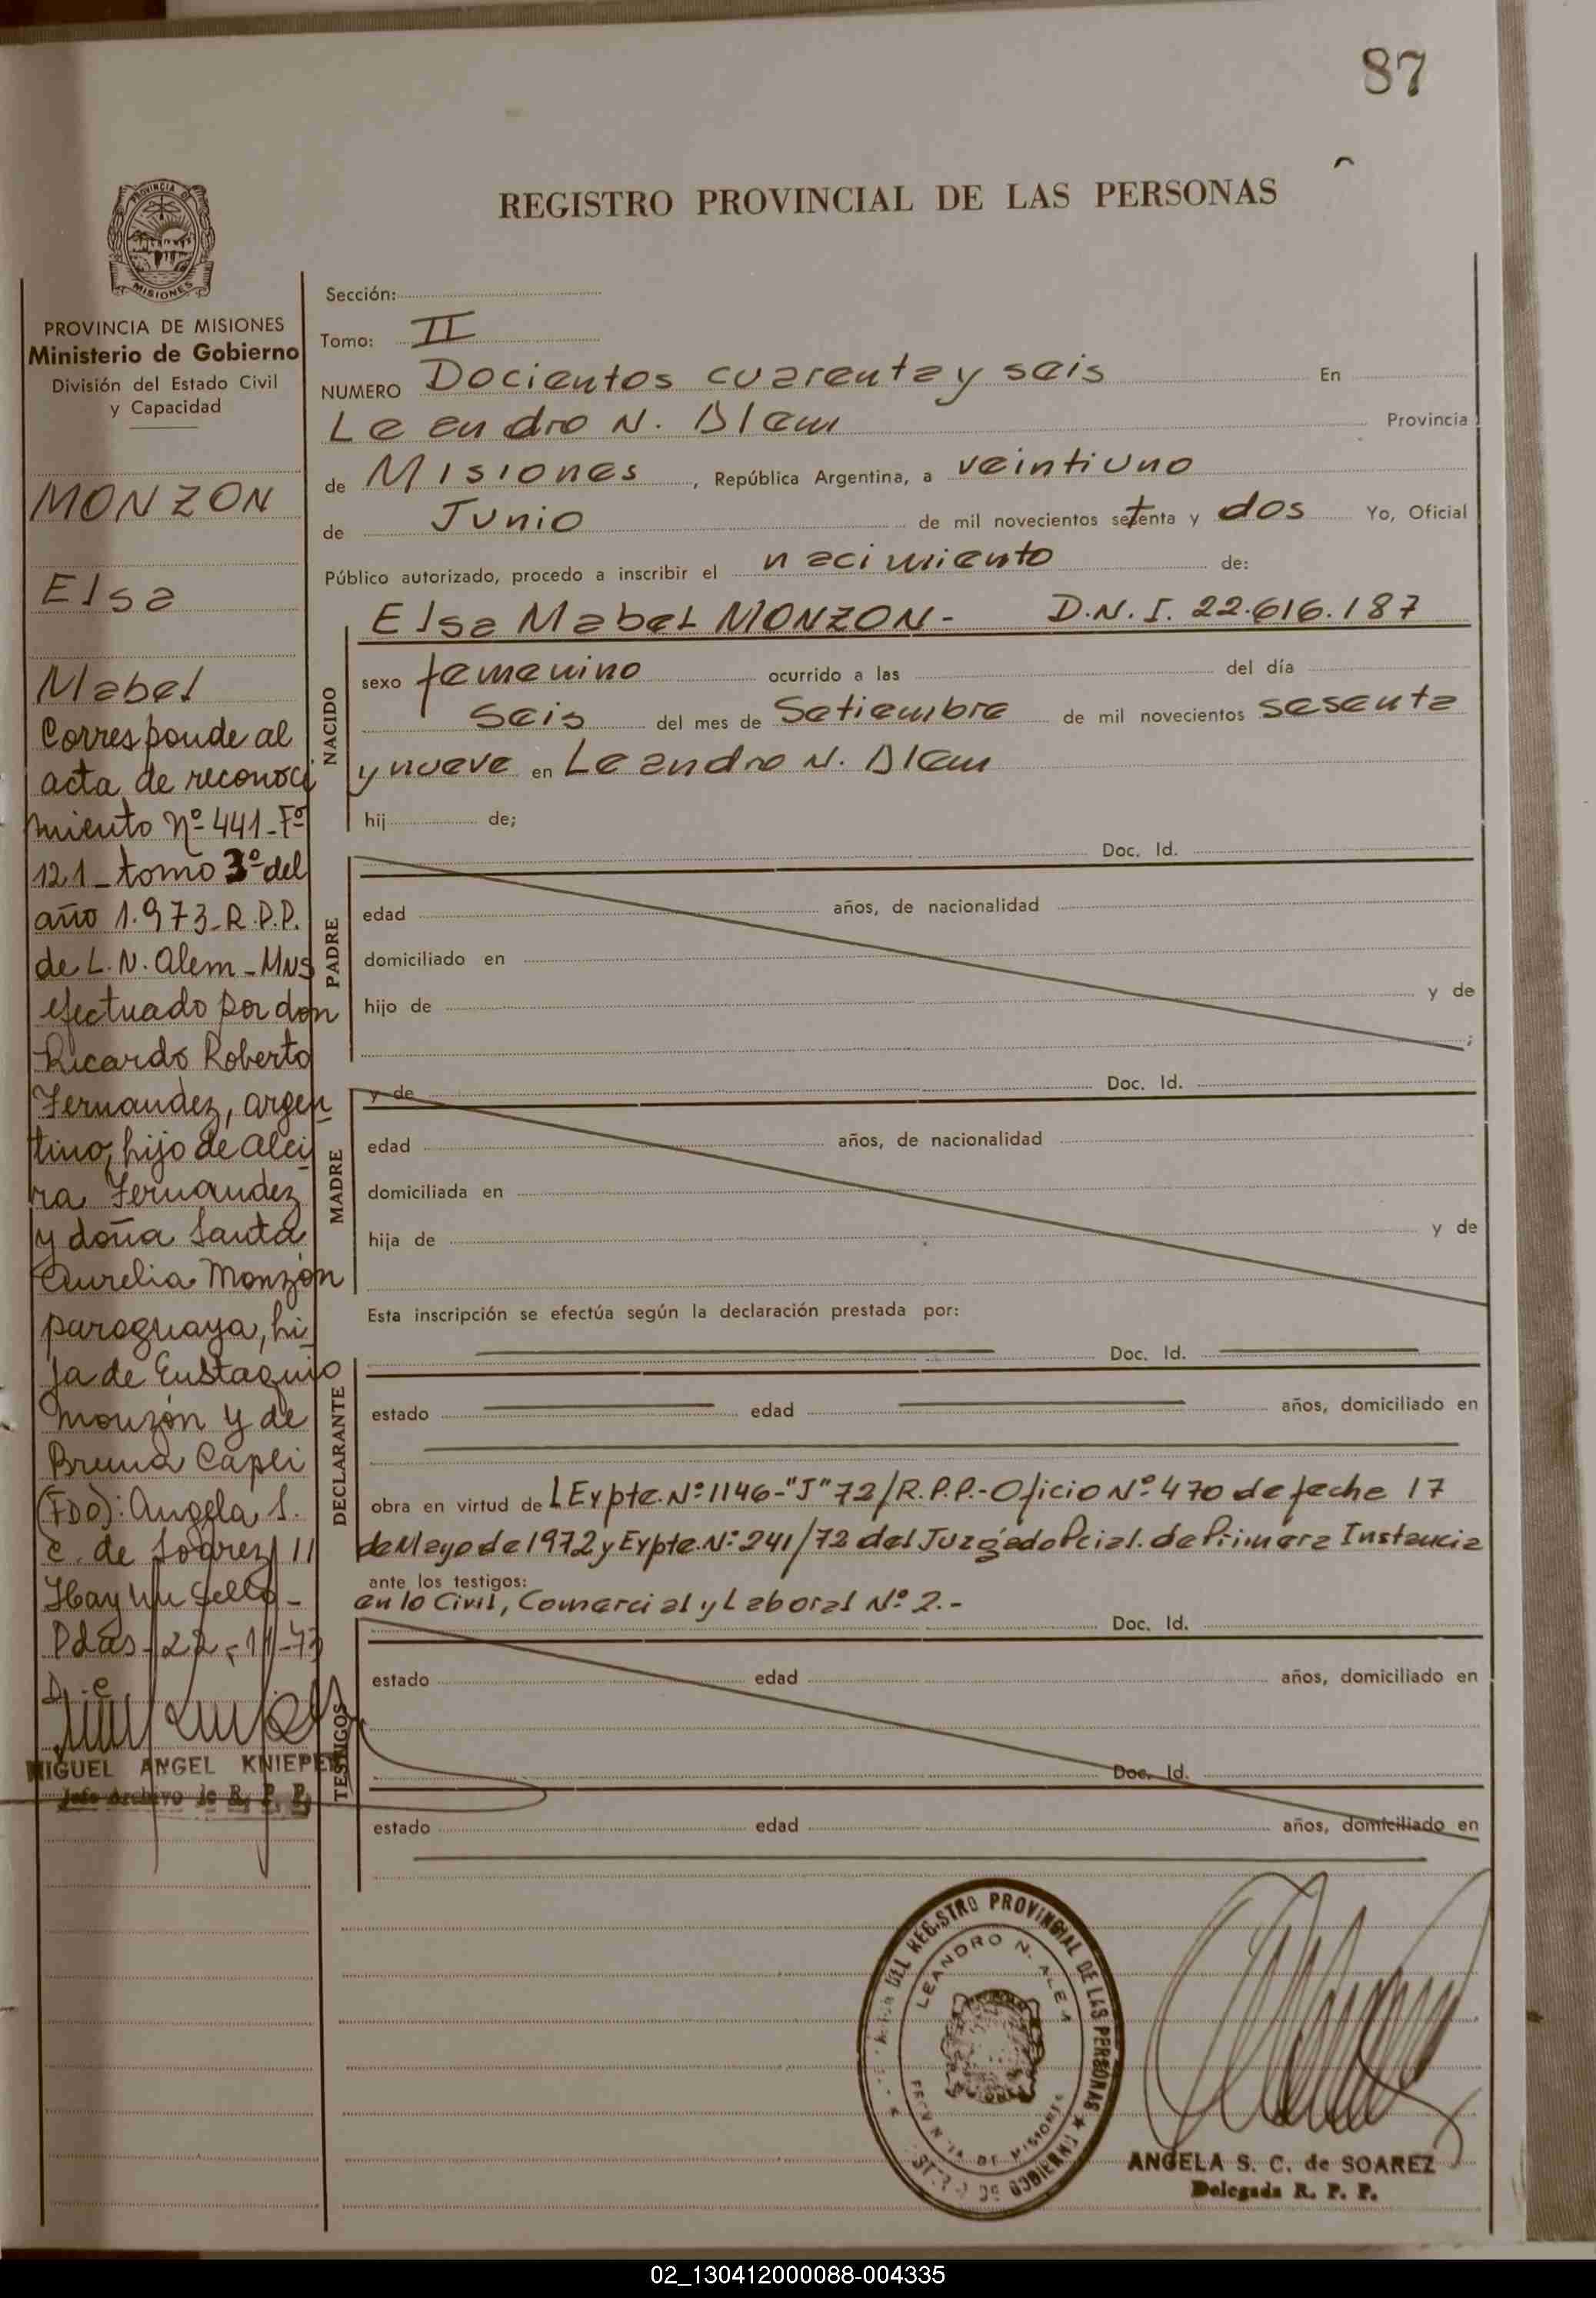 87
REGISTRO PROVINCIAL DE LAS PERSONAS
PROVINCIA DE
MISIONES
PROVINCIA DE MISIONES
Ministerio de Gobierno
División del Estado Civil
y Capacidad
MONZON
Elsa
Mabel
Corresponde al
acta de reconoci
miento Nº 441_Fº
121_tomo 3º del
año 1.973_R.P.P.
de L.N. Alem_Mns
efectuado por don
Ricardo Roberto
Fernandez, argen
tino, hijo de Alci
ra Fernandez
y doña Santa
Aurelia Monzón
paraguaya, hi
ja de Eustaquio
Monzón y de
Bruna Capli
(FDO): Angela S.
C. de Soarez //
Hay un sello_
Pdas_22_11_73
MIGUEL ANGEL KNIEPER
Jefe Archivo de R. P. P.
Sección:
Tomo: II
NUMERO Docientos cuarenta y seis En
Leandro N. Alem Provincia
de Misiones, República Argentina, a veintiuno
de Junio de mil novecientos setenta y dos Yo, Oficial
Público autorizado, procedo a inscribir el nacimiento de:
NACIDO
Elsa Mabel MONZON- D.N.I. 22.616.187
sexo femenino ocurrido a las del día
seis del mes de Setiembre de mil novecientos sesenta
y nueve en Leandro N. Alem
hij de;
PADRE
Doc. Id.
edad años, de nacionalidad
domiciliado en
hijo de y de
;
MADRE
y de Doc. Id.
edad años, de nacionalidad
domiciliada en
hija de y de
Esta inscripción se efectúa según la declaración prestada por:
DECLARANTE
Doc. Id.
estado edad años, domiciliado en
obra en virtud de L Expte. Nº 1146-"J" 72/R.P.P.-Oficio Nº 470 de fecha 17
de Mayo de 1972 y Expte. Nº 241/72 del Juzgado Pcial. de Primera Instancia
ante los testigos:
en lo Civil, Comercial y Laboral Nº 2.-
TESTIGOS
Doc. Id.
estado edad años, domiciliado en
Doc. Id.
estado edad años, domiciliado en
DEL REGISTRO PROVINCIAL DE LAS PERSONAS
LEANDRO N. ALEM
DE MISIONES
DE GOBIERNO
ANGELA S. C. de SOAREZ
Delegada R. P. P.
02_130412000088-004335